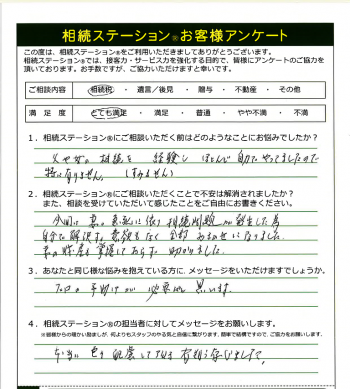 相続ステーション®お客様アンケート
この度は、相続ステーション®をご利用いただきましてありがとうございます。
相続ステーション®では、接客力・サービス力を強化する目的で、皆様にアンケートのご協力を
頂いております。お手数ですが、ご協力いただけますと幸いです。
ご相談内容 相続税 ・ 遺言／後見 ・ 贈与 ・ 不動産 ・ その他
満 足 度 とても満足 ・ 満足 ・ 普通 ・ やや不満 ・ 不満
1．相続ステーション®にご相談いただく前はどのようなことにお悩みでしたか？
父や母の相続を経験し ほとんど自力でやってましたので
特にありません。（すみません）
2．相続ステーション®にご相談いただくことで不安は解消されましたか？
また、相談を受けていただいて感じたことをご自由にお書きください。
今回 妻の 相続問題が発生した為
自分で解決する意欲もなく全部おまかせになりました。
助かりました。
3．あなたと同じ様な悩みを抱えている方に、メッセージをいただけますでしょうか。
プロの手助けが必要と思います。
4．相続ステーション®の担当者に対してメッセージをお願いします。
※皆様からの暖かい励ましが、何よりもスタッフのやる気と自信に繋がります。簡単で結構ですので、ご協力をお願いします。
本当に色々配慮して下さる有難う存じました。